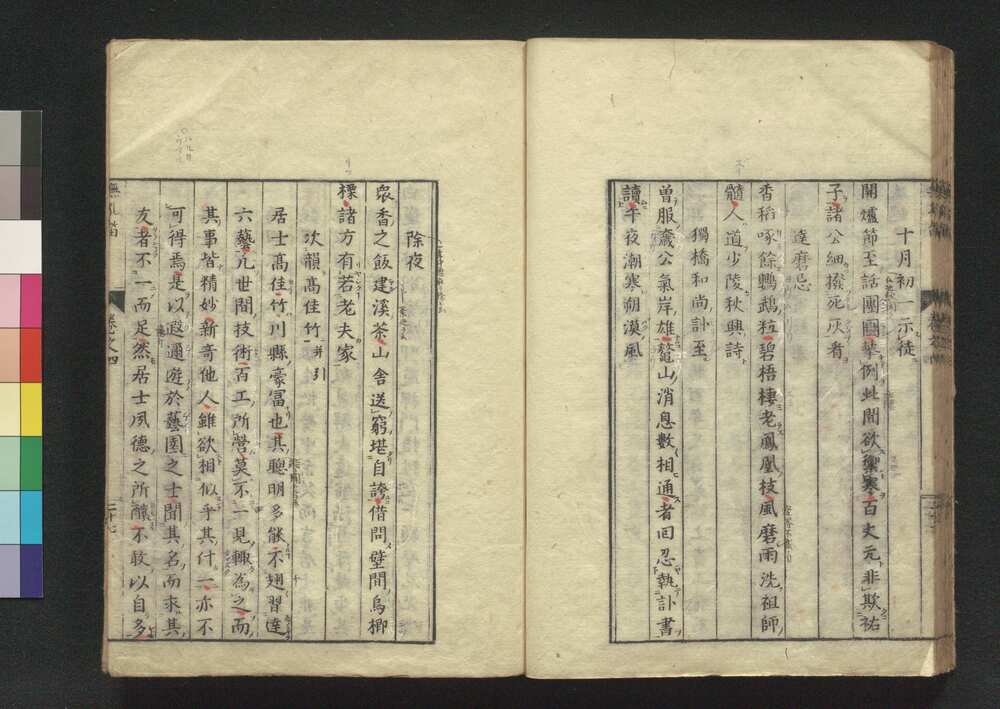 十月初一示徒
開爐節至話團圞擧例此間欲禦寒百丈元非欺祐
子諸公細撥死灰看
達磨忌
香稻啄餘鸚鵡粒碧梧棲老鳳凰枝風磨雨洗祖師
髓人道少陵秋興詩
獨橋和尚訃至
曽服藏公氣岸雄鼇山消息數相通者回忍執訃書
讀半夜潮寒朔漠風
除夜
衆香之飯建溪茶山舎送窮堪自誇借問壁間烏楖
標諸方有若老夫家
次韻高佳竹并引
居士高佳竹川縣豪冨也其聰明多能不翅習達
六藝凢世間技術百工所營莫不一見輙為之而
其事皆精妙新竒他人雖欲相似乎其什一亦不
可得焉是以遐邇遊於藝園之士聞其名而來其
友者不一而足然居士夙德之所釀不敢以自多
卷之四